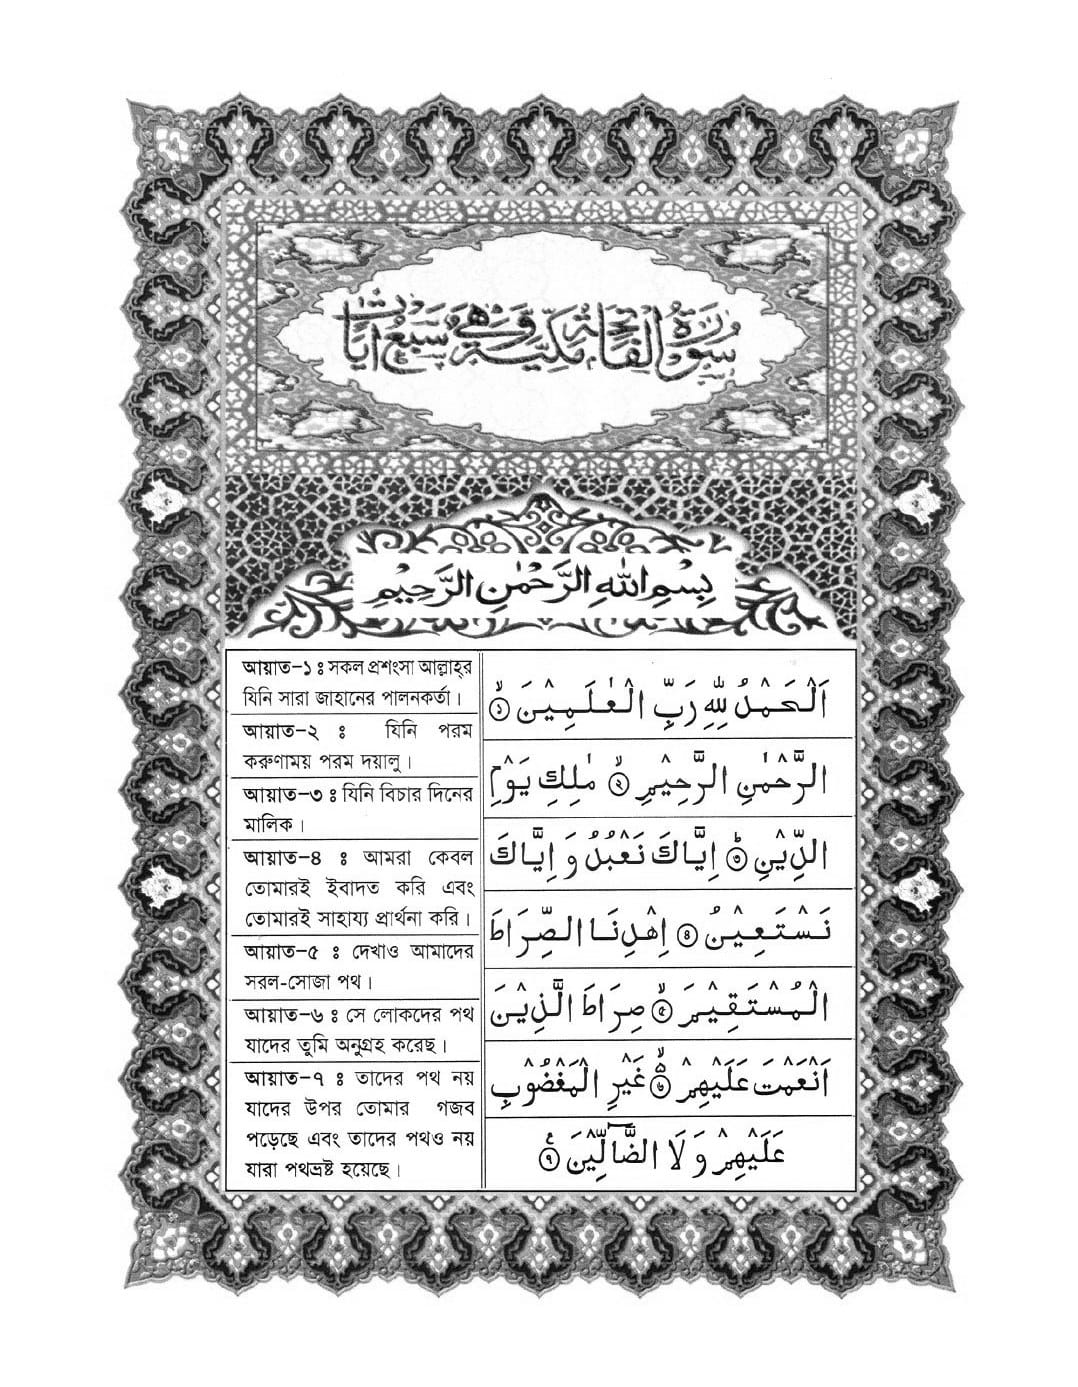 سُوْرَةُ الْفَاتِحَةِ مَكِّيَّةٌ وَّهِيَ سَبْعُ اٰيَاتٍ
بِسْمِ اللهِ الرَّحْمٰنِ الرَّحِيْمِ
আয়াত–১ ঃ সকল প্রশংসা আল্লাহ্‌র
যিনি সারা জাহানের পালনকর্তা।
আয়াত–২ ঃ যিনি পরম
করুণাময় পরম দয়ালু।
আয়াত–৩ ঃ যিনি বিচার দিনের
মালিক।
আয়াত–৪ ঃ আমরা কেবল
তোমারই ইবাদত করি এবং
তোমারই সাহায্য প্রার্থনা করি।
আয়াত–৫ ঃ দেখাও আমাদের
সরল-সোজা পথ।
আয়াত–৬ ঃ সে লোকদের পথ
যাদের তুমি অনুগ্রহ করেছ।
আয়াত–৭ ঃ তাদের পথ নয়
যাদের উপর তোমার গজব
পড়েছে এবং তাদের পথও নয়
যারা পথভ্রষ্ট হয়েছে।
اَلْحَمْدُ لِلّٰهِ رَبِّ الْعٰلَمِيْنَ ۙ﴿١﴾
الرَّحْمٰنِ الرَّحِيْمِ ۙ﴿٢﴾ مٰلِكِ يَوْمِ
الدِّيْنِ ؕ﴿٣﴾ اِيَّاكَ نَعْبُدُ وَ اِيَّاكَ
نَسْتَعِيْنُ ؕ﴿٤﴾ اِهْدِنَا الصِّرَاطَ
الْمُسْتَقِيْمَ ۙ﴿٥﴾ صِرَاطَ الَّذِيْنَ
اَنْعَمْتَ عَلَيْهِمْ ۙ﴿٦﴾ غَيْرِ الْمَغْضُوْبِ
عَلَيْهِمْ وَ لَا الضَّآلِّيْنَ ﴿٧﴾